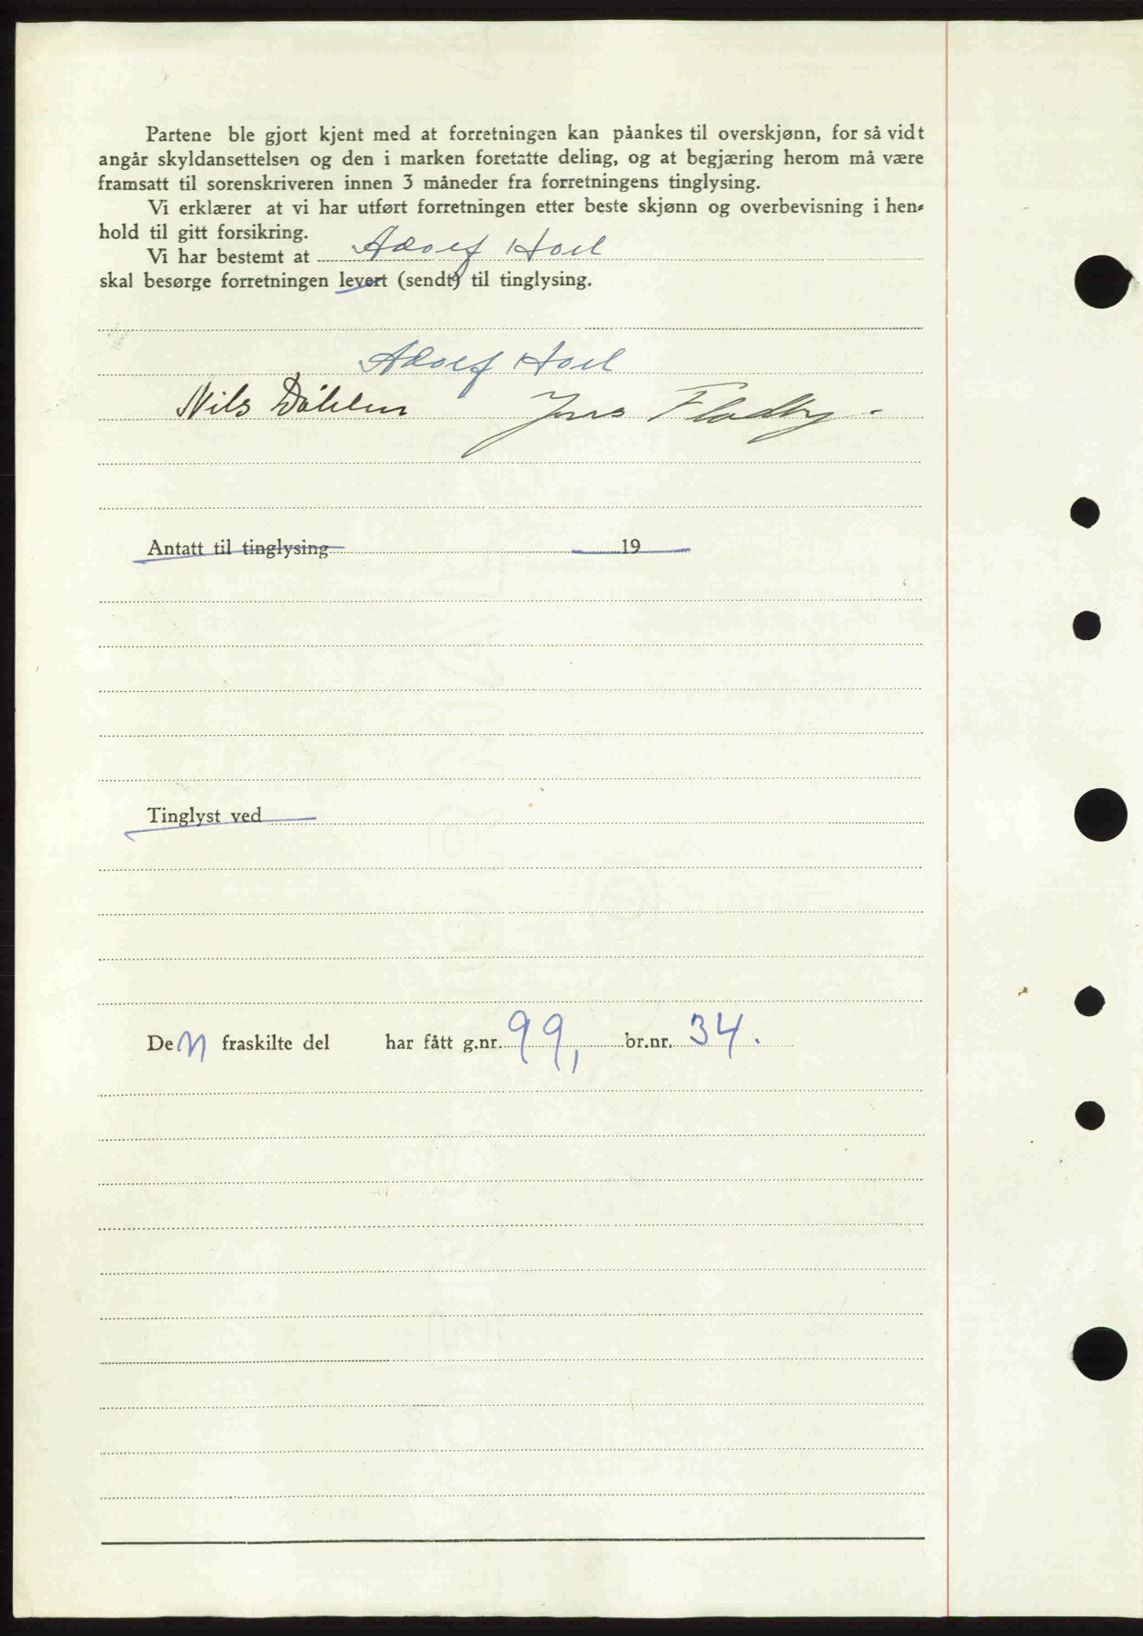 Partene ble gjort kjent med at forretningen kan påankes til overskjønn, for så vidt
angår skyldansettelsen og den i marken foretatte deling, og at begjæring herom må være
framsatt til sorenskriveren innen 3 måneder fra forretningens tinglysing.
Vi erklærer at vi har utført forretningen etter beste skjønn og overbevisning i hen-
hold til gitt forsikring.
Vi har bestemt at Adolf Hoel
skal besørge forretningen levert (sendt) til tinglysing.
Adolf Hoel
Nils Döhlen Jens Fladby.
Antatt til tinglysing 19
Tinglyst ved
Den fraskilte del har fått g.nr. 99, br.nr. 34.